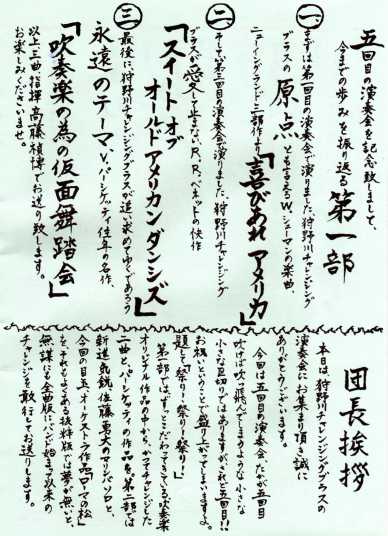 五回目の演奏会を記念致しまして、
今までの歩みを振り返る 第一部
一、まずは第一回目の演奏会で演りました、狩野川チャレンジング
ブラスの 原点 とも言えるW.シューマンの楽曲、
ニューイングランド三部作より「喜びあれ アメリカ」
二、そして第三回目の演奏会で演りました、狩野川チャレンジング
ブラスが愛して止まないR,R,ベネットの快作
「スイート オブ
オールド アメリカン ダンシズ」
三、最後に、狩野川チャレンジングブラスが追い求めてゆくであろう
永遠のテーマ V.パーシケッティ往年の名作、
「吹奏楽の為の仮面舞踏会」
以上三曲指揮 高藤 禎博でお送り致します。
お楽しみくださいませ。
団長挨拶
本日は、狩野川チャレンジングブラスの
演奏会にお集まり頂き誠に
ありがとうございます。
今回は五回目の演奏会、たかが五回目
吹けば吹っ飛んでしまうような小さな
小さな区切りではありますがされど五回目!!
お祝いということで盛り上がってしまいますよ。
題して「祭り!祭り!祭り!」
第一部ではずっとこだわってきている吹奏楽
オリジナル作品の中から、かつてチャレンジした
二曲とパーシケッティの作品を。第二部では
新進気鋭 佐藤勇太のマリンバソロと、
今回の目玉、オーケストラ作品「ローマの松」
を、それもよくある抜粋版では夢が無いと、
無謀にも全曲版に、バンド始まって以来の
チャレンジを敢行してお送りします。